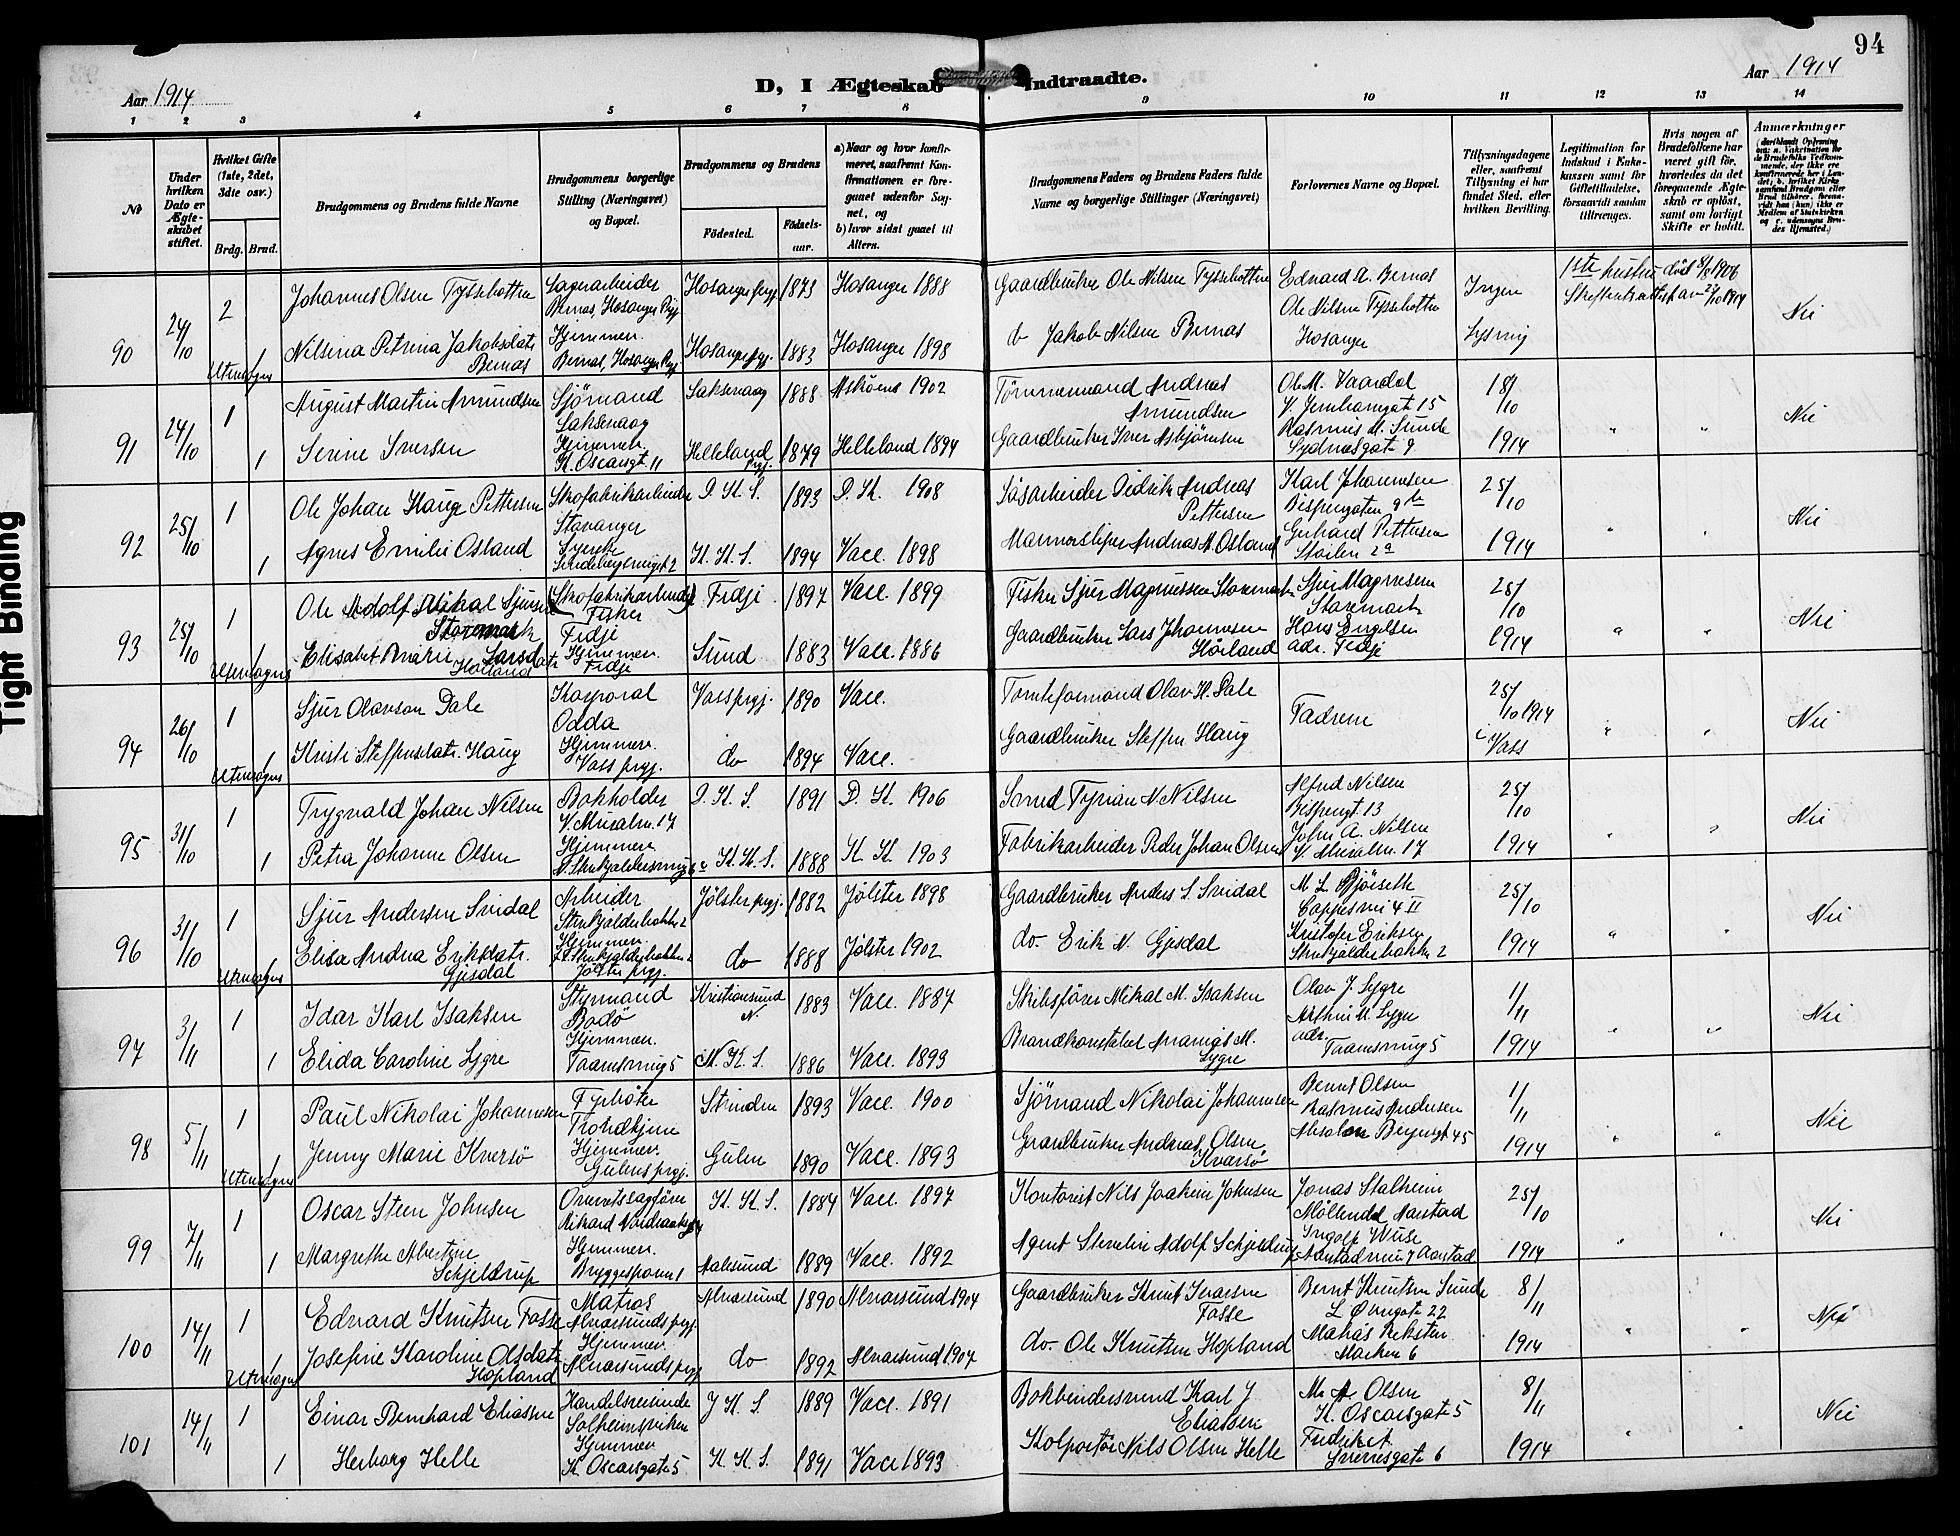 94
Aar 1914
D, I Ægteskab Indtraadte.
Aar 1914
1 2 3 4 5 6 7 8 9 10 11 12 13 14
No
Under hvilken Dato er Ægteskabet stiftet.
Hvilket Gifte (1ste, 2det, 3die osv.)
Brdg. Brud.
Brudgommens og Brudens fulde Navne
Brudgommens borgerlige Stilling (Næringsvei) og Bopæl.
Brudgommens og Brudens
Fødested. Fødsels-aar.
a) Naar og hvor konfirmeret, saafremt Konfirmationen er foregaaet udenfor Sognet, og
b) hvor sidst gaaet til Alters.
Brudgommens Faders og Brudens Faders fulde Navne og borgerlige Stillinger (Næringsvei)
Forlovernes Navne og Bopæl.
Tillysningsdagene eller, saafremt Tillysning ei har fundet Sted, efter hvilken Bevilling.
Legitimation for Indskud i Enkekassen samt for Giftetilladelse, forsaavidt saadan tiltrænges.
Hvis nogen af Brudefolkene har været gift før, hvorledes da det foregaaende Ægteskab er opløst, samt om lovligt Skifte er holdt.
Anmærkninger
90 24/10 2 Johannes Olsen Tyssebotten Sagarbeider Bernes, Hosanger Pgj Hosanger prgj. 1873 Hosanger 1888 Gaardbruker Ole Nilsen Tyssebotten Edvard A. Bernes Ingen 1ste hustru død 1906
Nilsina Petrina Jakobsdatr Bernes Hjemmev. Bernes, Hosanger Pgj Hosanger prgj. 1883 Hosanger 1898 do Jakob Nilsen Bernes Ole Nilsen Tyssebotten Hosanger Lysning Skifteattest av 27/10 1914 Nei
Utensogns
91 24/10 1 August Martin Amundsen Sjømand Laksevaag Laksevaag 1888 Askøens 1902 Tømmermand Andreas Amundsen Ole M. Vaardal V. Jernbanegate 15 18/10 Nei
1 Serine Iversen Hjemmev. K. Oscarsgt. 11 Helleland prgj. 1879 Helleland 1894 Gaardbruker Iver Asbjørnsen Rasmus M. Sunde Sydnesgate 9 1914 " "
92 25/10 1 Ole Johan Hauge Pettersen Skofabrikarbeider Stavanger D. K. S. 1893 D. K. 1908 Løsarbeider Didrik Andreas Pettersen Karl Johannesen Bispengaten 9b 25/10 Nei
1 Agnes Emilie Osland Syerske K. K. S. 1894 Vacc. 1898 Marmorsliper Andreas M. Osland Gerhard Pettersen Støilen 2a 1914 " "
93 25/10 1 Ole Adolf Mikal Sjursen Storemark (Skofabrikarbeider) Fisker Fedje Fedje 1897 Vacc. 1899 Fisker Sjur Magnussen Storemark Sjur Magnesen Storemark 25/10 Nei
Elisabet Marie Larsdatr Høiland Hjemmev. Fedje Sund 1883 Vacc. 1886 Gaardbruker Lars Johannesen Høiland Hans Engelsen adr. Fedje 1914 " "
Utensogns
94 26/10 1 Sjur Olavson Dale Korporal Odda Voss prgj. 1890 Vacc. Tomteformand Olav H. Dale Fædrene 25/10 1914 Nei
Kristi Steffensdatr. Haug Hjemmev. Voss prgj. do 1894 Vacc. Gaardbruker Steffen Haug i Voss " "
Utensogns
95 31/10 1 Trygvald Johan Nilsen Bokholder V. Muralm. 17 D. K. S. 1891 D. K. 1906 Smed Tyrian N. Nilsen Alfred Nilsen Bispengt 13 25/10 Nei
1 Petra Johanne Olsen Hjemmev. K. K. S. 1888 K. K. 1903 Fabrikarbeider Peder Johan Olsen John A. Nilsen V. Muralm. 17 1914 " "
96 31/10 1 Sjur Andersen Svidal Arbeider Strukjalderbakken 2 Jølster prgj. 1882 Jølster 1898 Gaardbruker Anders S. Svidal M. L. Bjørsetth Cappesvei 4 II 25/10 Nei
Elisa Andrea Eriksdatr. Gjesdal Hjemmev. Jølster prgj. do 1888 Jølster 1902 do. Erik N. Gjesdal Kristofer Eriksen Strukjalderbakken 2 1914 " "
Utensogns
97 3/11 1 Idar Karl Isaksen Styrmand Bodø Kristiansund N. 1883 Vacc. 1887 Skibsfører Mikal M. Isaksen Olav J. Lygre 1/11 Nei
1 Elida Caroline Lygre Hjemmev. N. K. S. 1886 Vacc. 1893 Brandkonstabel M. Lygre adr. 1914 " "
98 5/11 1 Paul Nikolai Johannesen Fyrbøter Trondhjem Strinden 1893 Vacc. 1900 Sjømand Nikolai Johannesen Bernt Olsen Rasmus Andersen 1/11 Nei
Jenny Marie Kversø Hjemmev. Gulens prgj. Gulen 1890 Vacc. 1893 Gaardbruker Andreas Olsen Kvarsø Absalon Beyersgt 45 1914 " "
Utensogns
99 7/11 1 Oscar Steen Johnsen Overretssagfører Rikard Nordraaksgt K. K. S. 1884 Vacc. 1897 Kontorist Nils Joakim Johnsen Jonas Stalheim Møllendal Aarstad 25/10 Nei
1 Margrethe Albertine Schjeldrup Hjemmev. Bryggesporen 1 Aalesund 1889 Vacc. 1892 Agent Adolf Schjeldrup Ingolf Wiese Aarstadvei 7 Aarstad 1914 " "
100 14/11 1 Edvard Knutsen Fosse Matros Alversunds prgj. Alversund 1890 Alversund 1904 Gaardbruker Knut Iversen Fosse Bernt Knutsen Sunde L. Øvregate 22 8/11 Nei
Josefine Karoline Olsdatr Hopland Hjemmev. Alversunds prgj do 1892 Alversund 1907 do. Ole Knutsen Hopland Matias Reksten Marken 6 1914 " "
Utensogns
101 14/11 1 Einar Bernhard Eliassen Handelsreisende Solheimsviken J. K. S. 1889 Vacc. 1891 Bokbindersvend Karl J. Eliassen M. A. Olsen K. Oscarsgate 5 8/11 Nei
1 Herborg Helle Hjemmev. K. Oscarsgate 5 K. K. S. 1891 Vacc 1893 Kolportør Nils Olsen Helle Sverresgate 6 1914 " "
Tight Binding